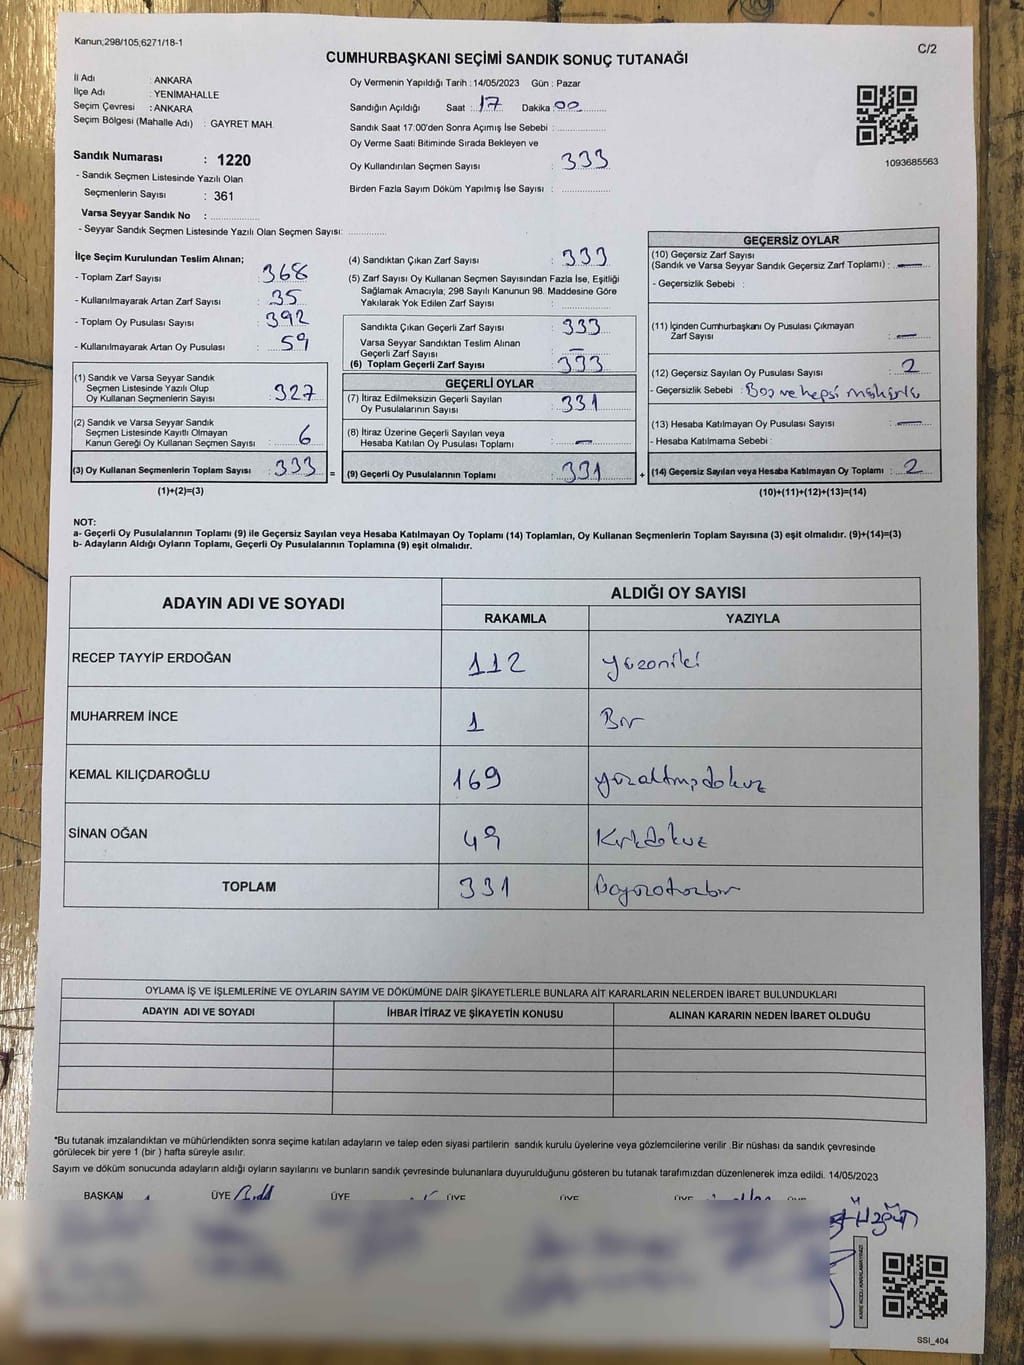 Kanun;298/105,6271/18-1
C/2
CUMHURBAŞKANI SEÇİMİ SANDIK SONUÇ TUTANAĞI
İl Adı : ANKARA
İlçe Adı : YENİMAHALLE
Seçim Çevresi : ANKARA
Seçim Bölgesi (Mahalle Adı) : GAYRET MAH.
Sandık Numarası : 1220
- Sandık Seçmen Listesinde Yazılı Olan
Seçmenlerin Sayısı : 361
Varsa Seyyar Sandık No :
- Seyyar Sandık Seçmen Listesinde Yazılı Olan Seçmen Sayısı:
Oy Vermenin Yapıldığı Tarih : 14/05/2023 Gün : Pazar
Sandığın Açıldığı Saat : 17 Dakika : 00
Sandık Saat 17:00'den Sonra Açımış İse Sebebi :
Oy Verme Saati Bitiminde Sırada Bekleyen ve
Oy Kullandırılan Seçmen Sayısı : 333
Birden Fazla Sayım Döküm Yapılmış İse Sayısı :
1093685563
İlçe Seçim Kurulundan Teslim Alınan;
- Toplam Zarf Sayısı : 368
- Kullanılmayarak Artan Zarf Sayısı : 35
- Toplam Oy Pusulası Sayısı : 392
- Kullanılmayarak Artan Oy Pusulası : 59
(1) Sandık ve Varsa Seyyar Sandık
Seçmen Listesinde Yazılı Olup
Oy Kullanan Seçmenlerin Sayısı : 327
(2) Sandık ve Varsa Seyyar Sandık
Seçmen Listesinde Kayıtlı Olmayan
Kanun Gereği Oy Kullanan Seçmen Sayısı : 6
(3) Oy Kullanan Seçmenlerin Toplam Sayısı : 333 =
(1)+(2)=(3)
(4) Sandıktan Çıkan Zarf Sayısı : 333
(5) Zarf Sayısı Oy Kullanan Seçmen Sayısından Fazla İse, Eşitliği
Sağlamak Amacıyla; 298 Sayılı Kanunun 98. Maddesine Göre
Yakılarak Yok Edilen Zarf Sayısı :
Sandıkta Çıkan Geçerli Zarf Sayısı : 333
Varsa Seyyar Sandıktan Teslim Alınan
Geçerli Zarf Sayısı : –
(6) Toplam Geçerli Zarf Sayısı : 333
GEÇERLİ OYLAR
(7) İtiraz Edilmeksizin Geçerli Sayılan
Oy Pusulalarının Sayısı : 331
(8) İtiraz Üzerine Geçerli Sayılan veya
Hesaba Katılan Oy Pusulası Toplamı : –
(9) Geçerli Oy Pusulalarının Toplamı : 331 +
GEÇERSİZ OYLAR
(10) Geçersiz Zarf Sayısı
(Sandık ve Varsa Seyyar Sandık Geçersiz Zarf Toplamı) : –
- Geçersizlik Sebebi :
(11) İçinden Cumhurbaşkanı Oy Pusulası Çıkmayan
Zarf Sayısı : –
(12) Geçersiz Sayılan Oy Pusulası Sayısı : 2
- Geçersizlik Sebebi : Boş ve hepsi mühürlü
(13) Hesaba Katılmayan Oy Sayısı : –
- Hesaba Katılmama Sebebi :
(14) Geçersiz Sayılan veya Hesaba Katılmayan Oy Toplamı : 2
(10)+(11)+(12)+(13)=(14)
NOT:
a- Geçerli Oy Pusulalarının Toplamı (9) ile Geçersiz Sayılan veya Hesaba Katılmayan Oy Toplamı (14) Toplamları, Oy Kullanan Seçmenlerin Toplam Sayısına (3) eşit olmalıdır. (9)+(14)=(3)
b- Adayların Aldığı Oyların Toplamı, Geçerli Oy Pusulalarının Toplamına (9) eşit olmalıdır.
ADAYIN ADI VE SOYADI ALDIĞI OY SAYISI
RAKAMLA YAZIYLA
RECEP TAYYİP ERDOĞAN 112 yüzoniki
MUHARREM İNCE 1 Bir
KEMAL KILIÇDAROĞLU 169 yüzaltmışdokuz
SİNAN OĞAN 49 Kırkdokuz
TOPLAM 331 üçyüzotuzbir
OYLAMA İŞ VE İŞLEMLERİNE VE OYLARIN SAYIM VE DÖKÜMÜNE DAİR ŞİKAYETLERLE BUNLARA AİT KARARLARIN NELERDEN İBARET BULUNDUKLARI
ADAYIN ADI VE SOYADI İHBAR İTİRAZ VE ŞİKAYETİN KONUSU ALINAN KARARIN NEDEN İBARET OLDUĞU
*Bu tutanak imzalandıktan ve mühürlendikten sonra seçime katılan adayların ve talep eden siyasi partilerin sandık kurulu üyelerine veya gözlemcilerine verilir .Bir nüshası da sandık çevresinde
görülecek bir yere 1 (bir ) hafta süreyle asılır.
Sayım ve döküm sonucunda adayların aldığı oyların sayılarını ve bunların sandık çevresinde bulunanlara duyurulduğunu gösteren bu tutanak tarafımızdan düzenlenerek imza edildi. 14/05/2023
BAŞKAN ÜYE ÜYE ÜYE ÜYE ÜYE ÜYE
KARE KODU KARALAMAYINIZ!
SSI_404